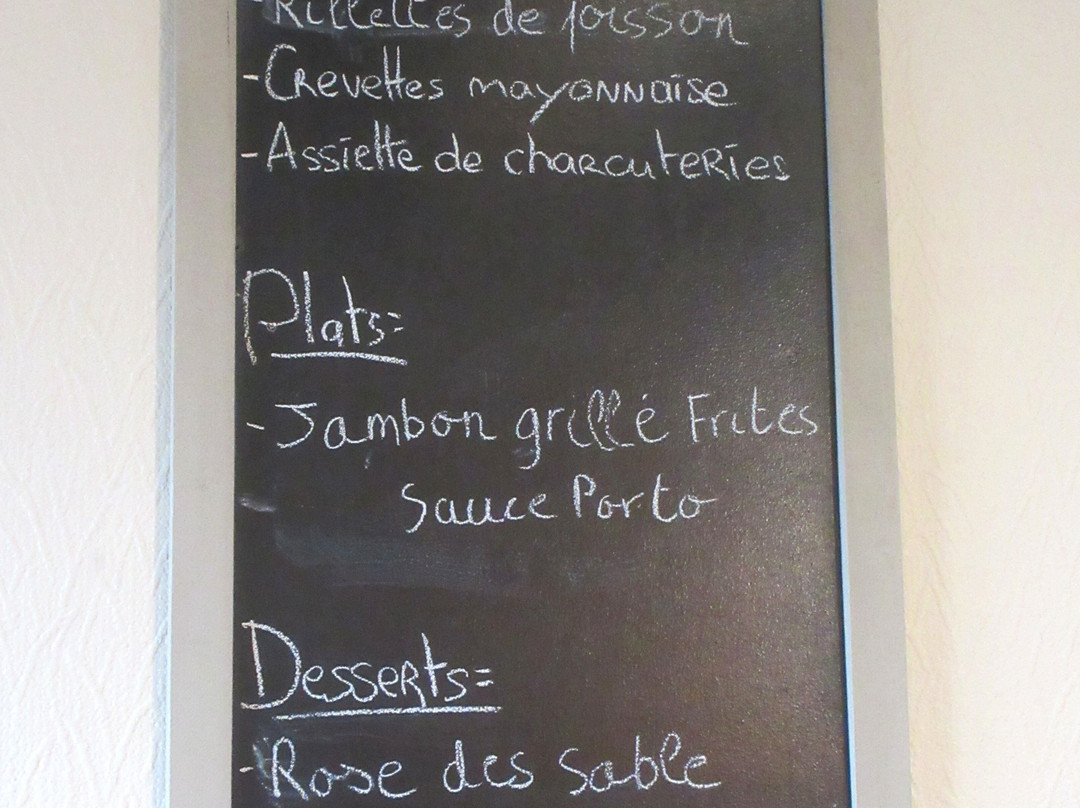 -Rillettes de poisson
-Crevettes mayonnaise
-Assiette de charcuteries
Plats:
-Jambon grillé Frites
Sauce Porto
Desserts:
-Rose des sable